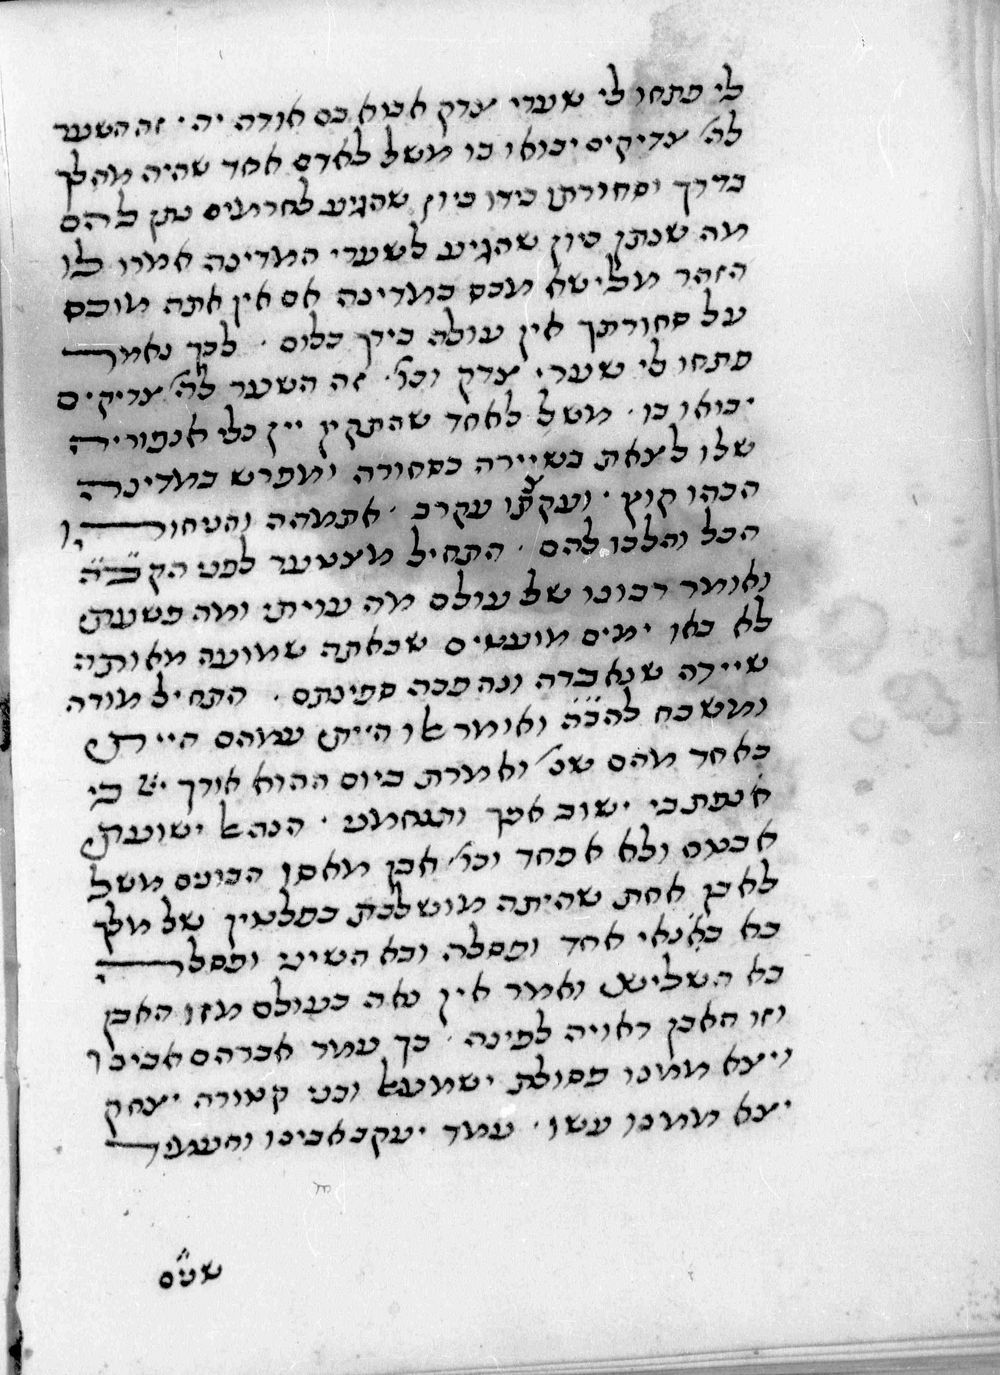 לי פתחו לי שערי צדק אבוא בם אודה יה · זה השער
לה׳ צדיקים יבואו בו משל לאדם אחד שהיה מהלך
בדרך וסחורתו בידו כיון שהגיע לחרמים נתן להם
מה שנתן כיון שהגיע לשערי המדינה אמרו לו
הזהר מלישא מכס במדינה אם אין אתה מוכס
על סחורתך אין עולה בידך כלום · לכך נאמר
פתחו לי שערי צדק וכו׳ · זה השער לה׳ צדיקים
יבואו בו · משל לאחד שהתקין יין כלי אנפוריה
שלו לצאת בשיירה בסחורה ומפרש במדינה
הכהו קוץ · ועקצו עקרב · אתמהה והטחו
הכל והלכו להם · התחיל מצטער לפני הקב״ה
ואומר רבונו של עולם מה עויתי ומה פשעתי
לא באו ימים מועטים שבאתה שמועה מאותה
שיירה שנאבדה ונהפכה ספינתם · התחיל מודה
ומשבח להב״ה ואומר אלו הייתי עמהם הייתי
כאחד מהם שנ׳ ואמרת ביום ההוא אודך יי׳ כי
אנפת בי ישוב אפך ותנחמני · הנה אל ישועתי
אבטח ולא אפחד וכו׳ אבן מאסו הבונים משל
לאבן אחת שהיתה מושלכת בפלטין של מלך
בא בנאי אחד ופסלה ובא השיני ופסלה
בא השלישי ואמר אין נאה בעולם מזו האבן
וזו האבן ראויה לפינה · כך עמד אברהם אבינו
ויצא ממנו פסולת ישמעאל ובני קטורה יצחק
יצא ממנו עשו · עמד יעקב אבינו והעמיד